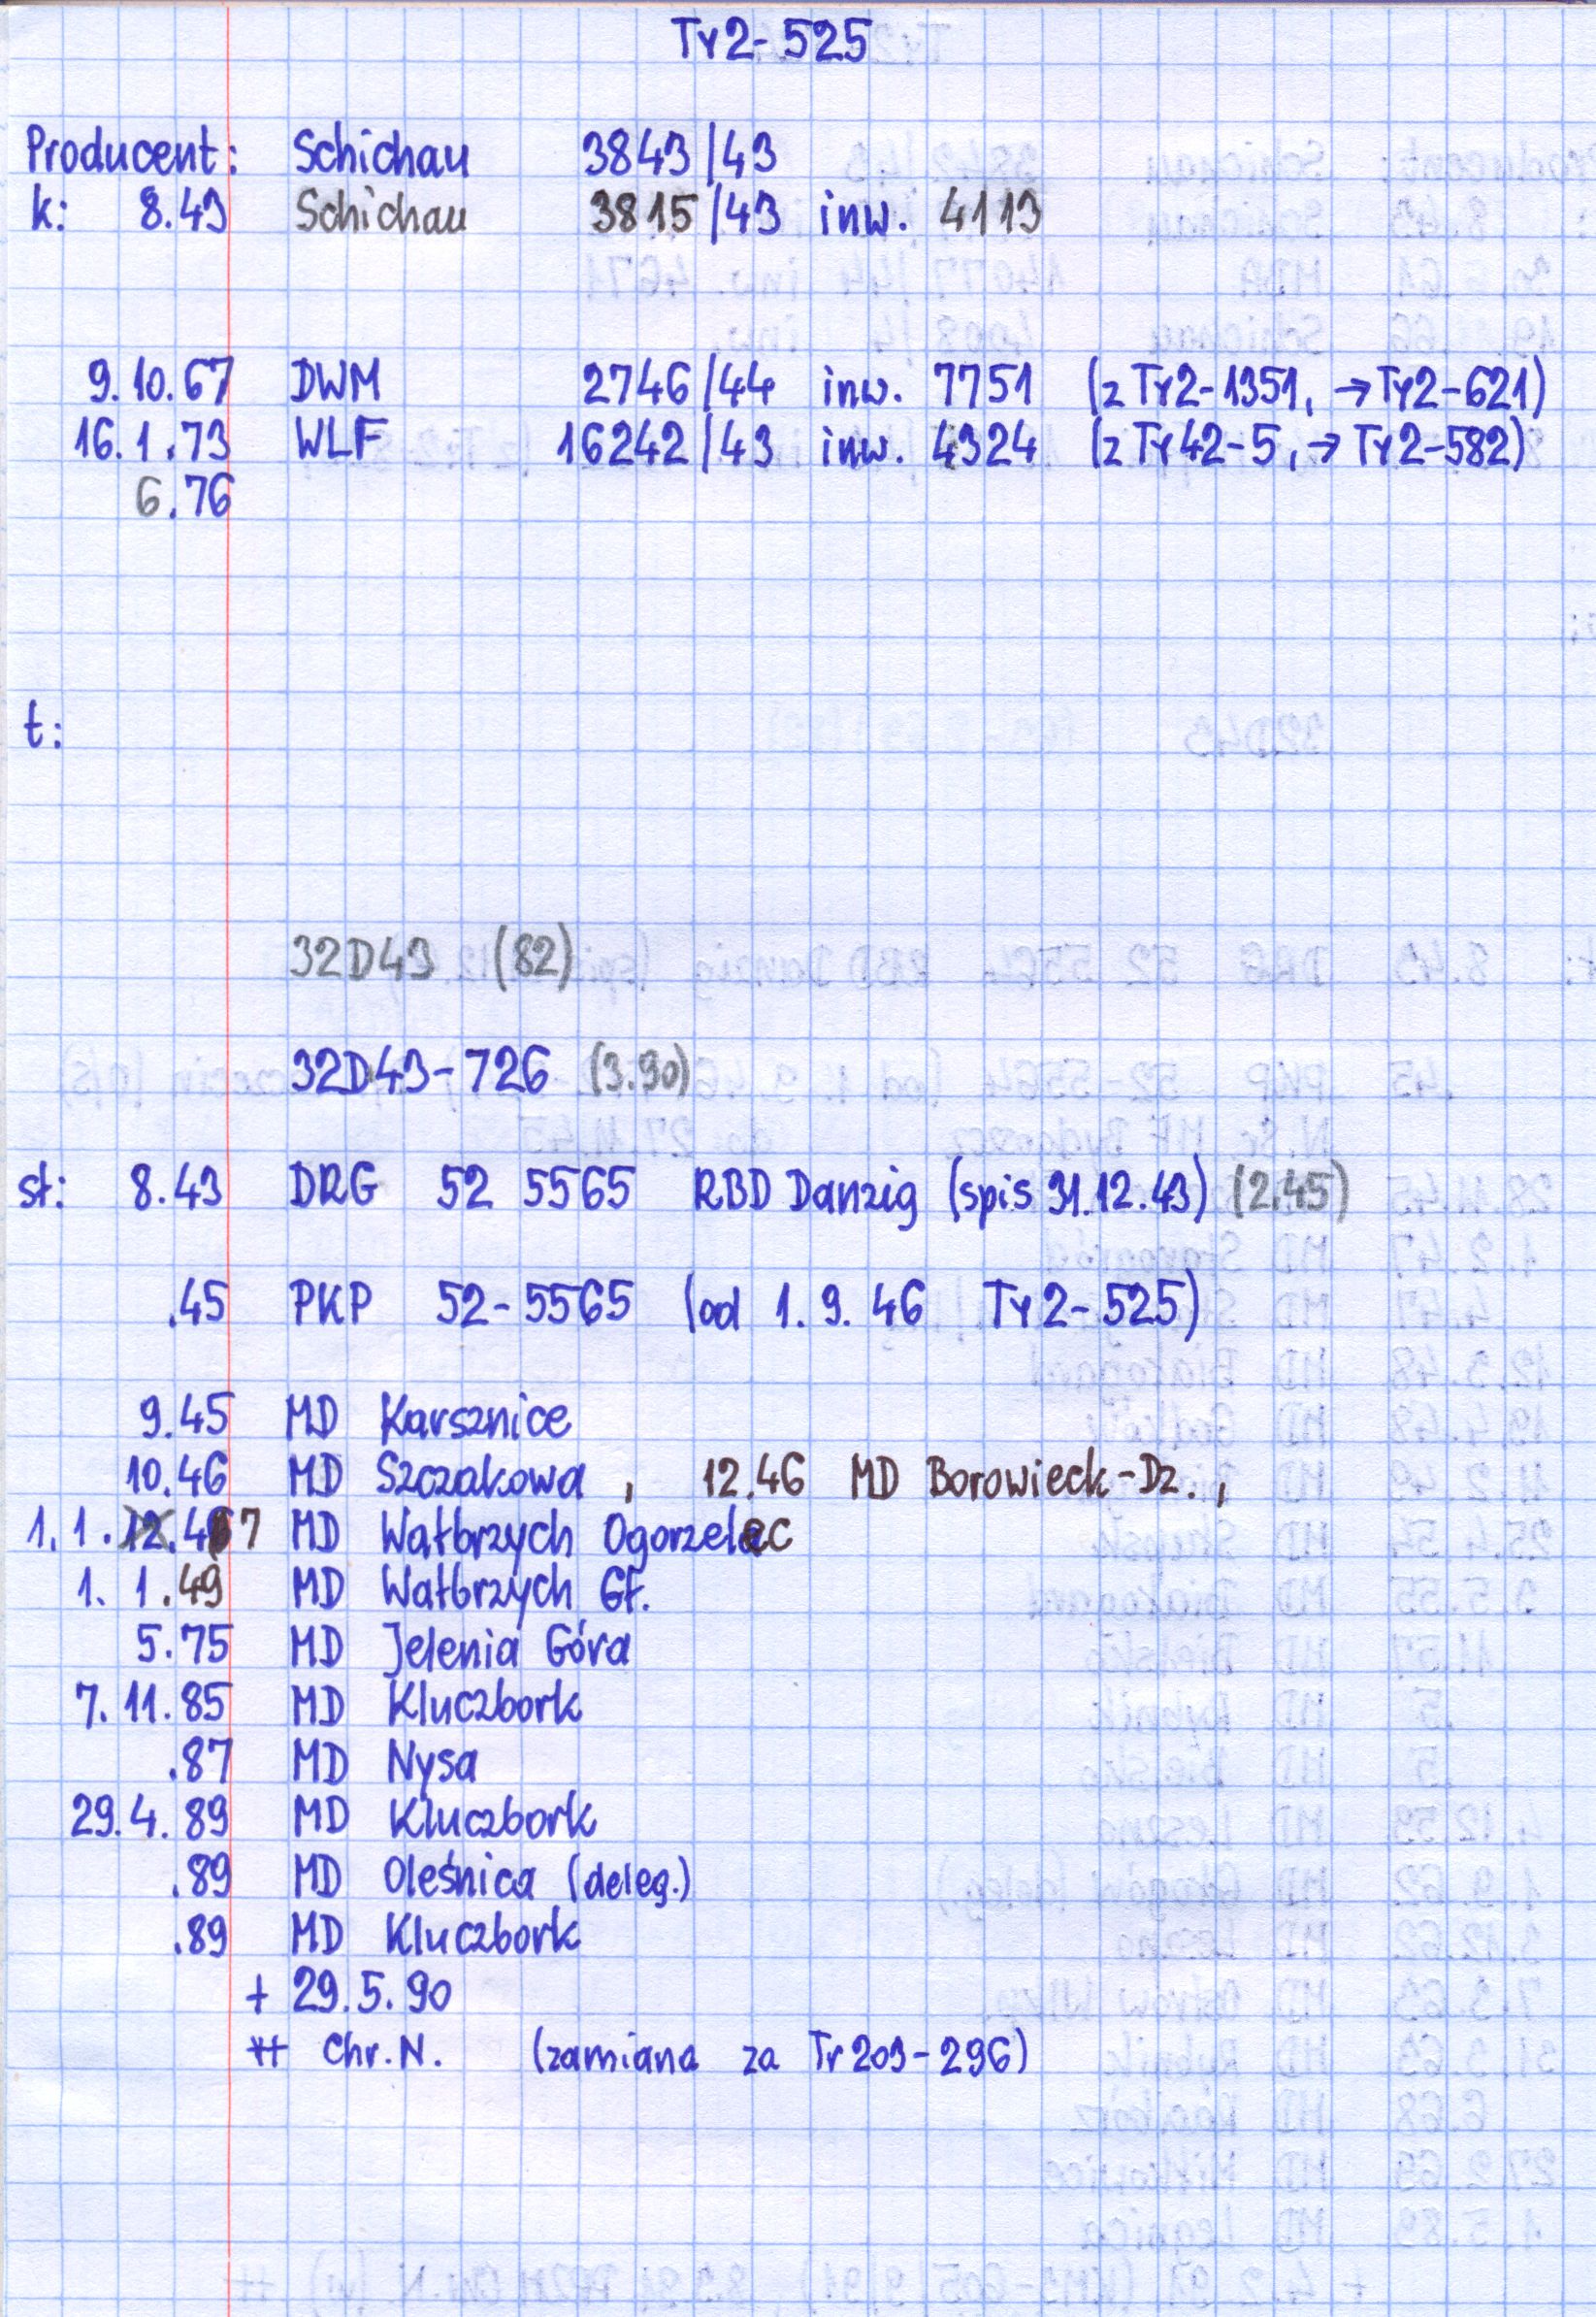 Ty2-525
Producent: Schichau 3843/43
k: 8.43 Schichau 3815/43 inw. 4113
9.10.67 DWM 2746/44 inw. 7751 (z Ty2-1351, → Ty2-621)
16.1.73 WLF 16242/43 inw. 4324 (z Ty42-5, → Ty2-582)
6.76
t:
32D43 (82)
32D43-726 (3.90)
st: 8.43 DRG 52 5565 RBD Danzig (spis 31.12.43) (2.45)
.45 PKP 52-5565 (od 1.9.46 Ty2-525)
9.45 MD Karsznice
10.46 MD Szczakowa, 12.46 MD Borowieck-Dz.,
1.1.47 MD Wałbrzych Ogorzelec
1.1.49 MD Wałbrzych Gł.
5.75 MD Jelenia Góra
7.11.85 MD Kluczbork
.87 MD Nysa
29.4.89 MD Kluczbork
.89 MD Oleśnica (deleg.)
.89 MD Kluczbork
+ 29.5.90
++ Chr.N. (zamiana za Tr203-296)